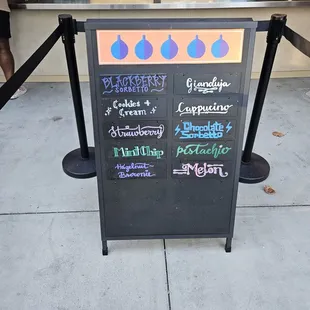 BLACKBERRY
SORBETTO
Cookies &
Cream
Strawberry
Mint Chip
Hazelnut
Brownie
Gianduja
Cappuccino
Chocolate
Sorbetto
Pistachio
Melon